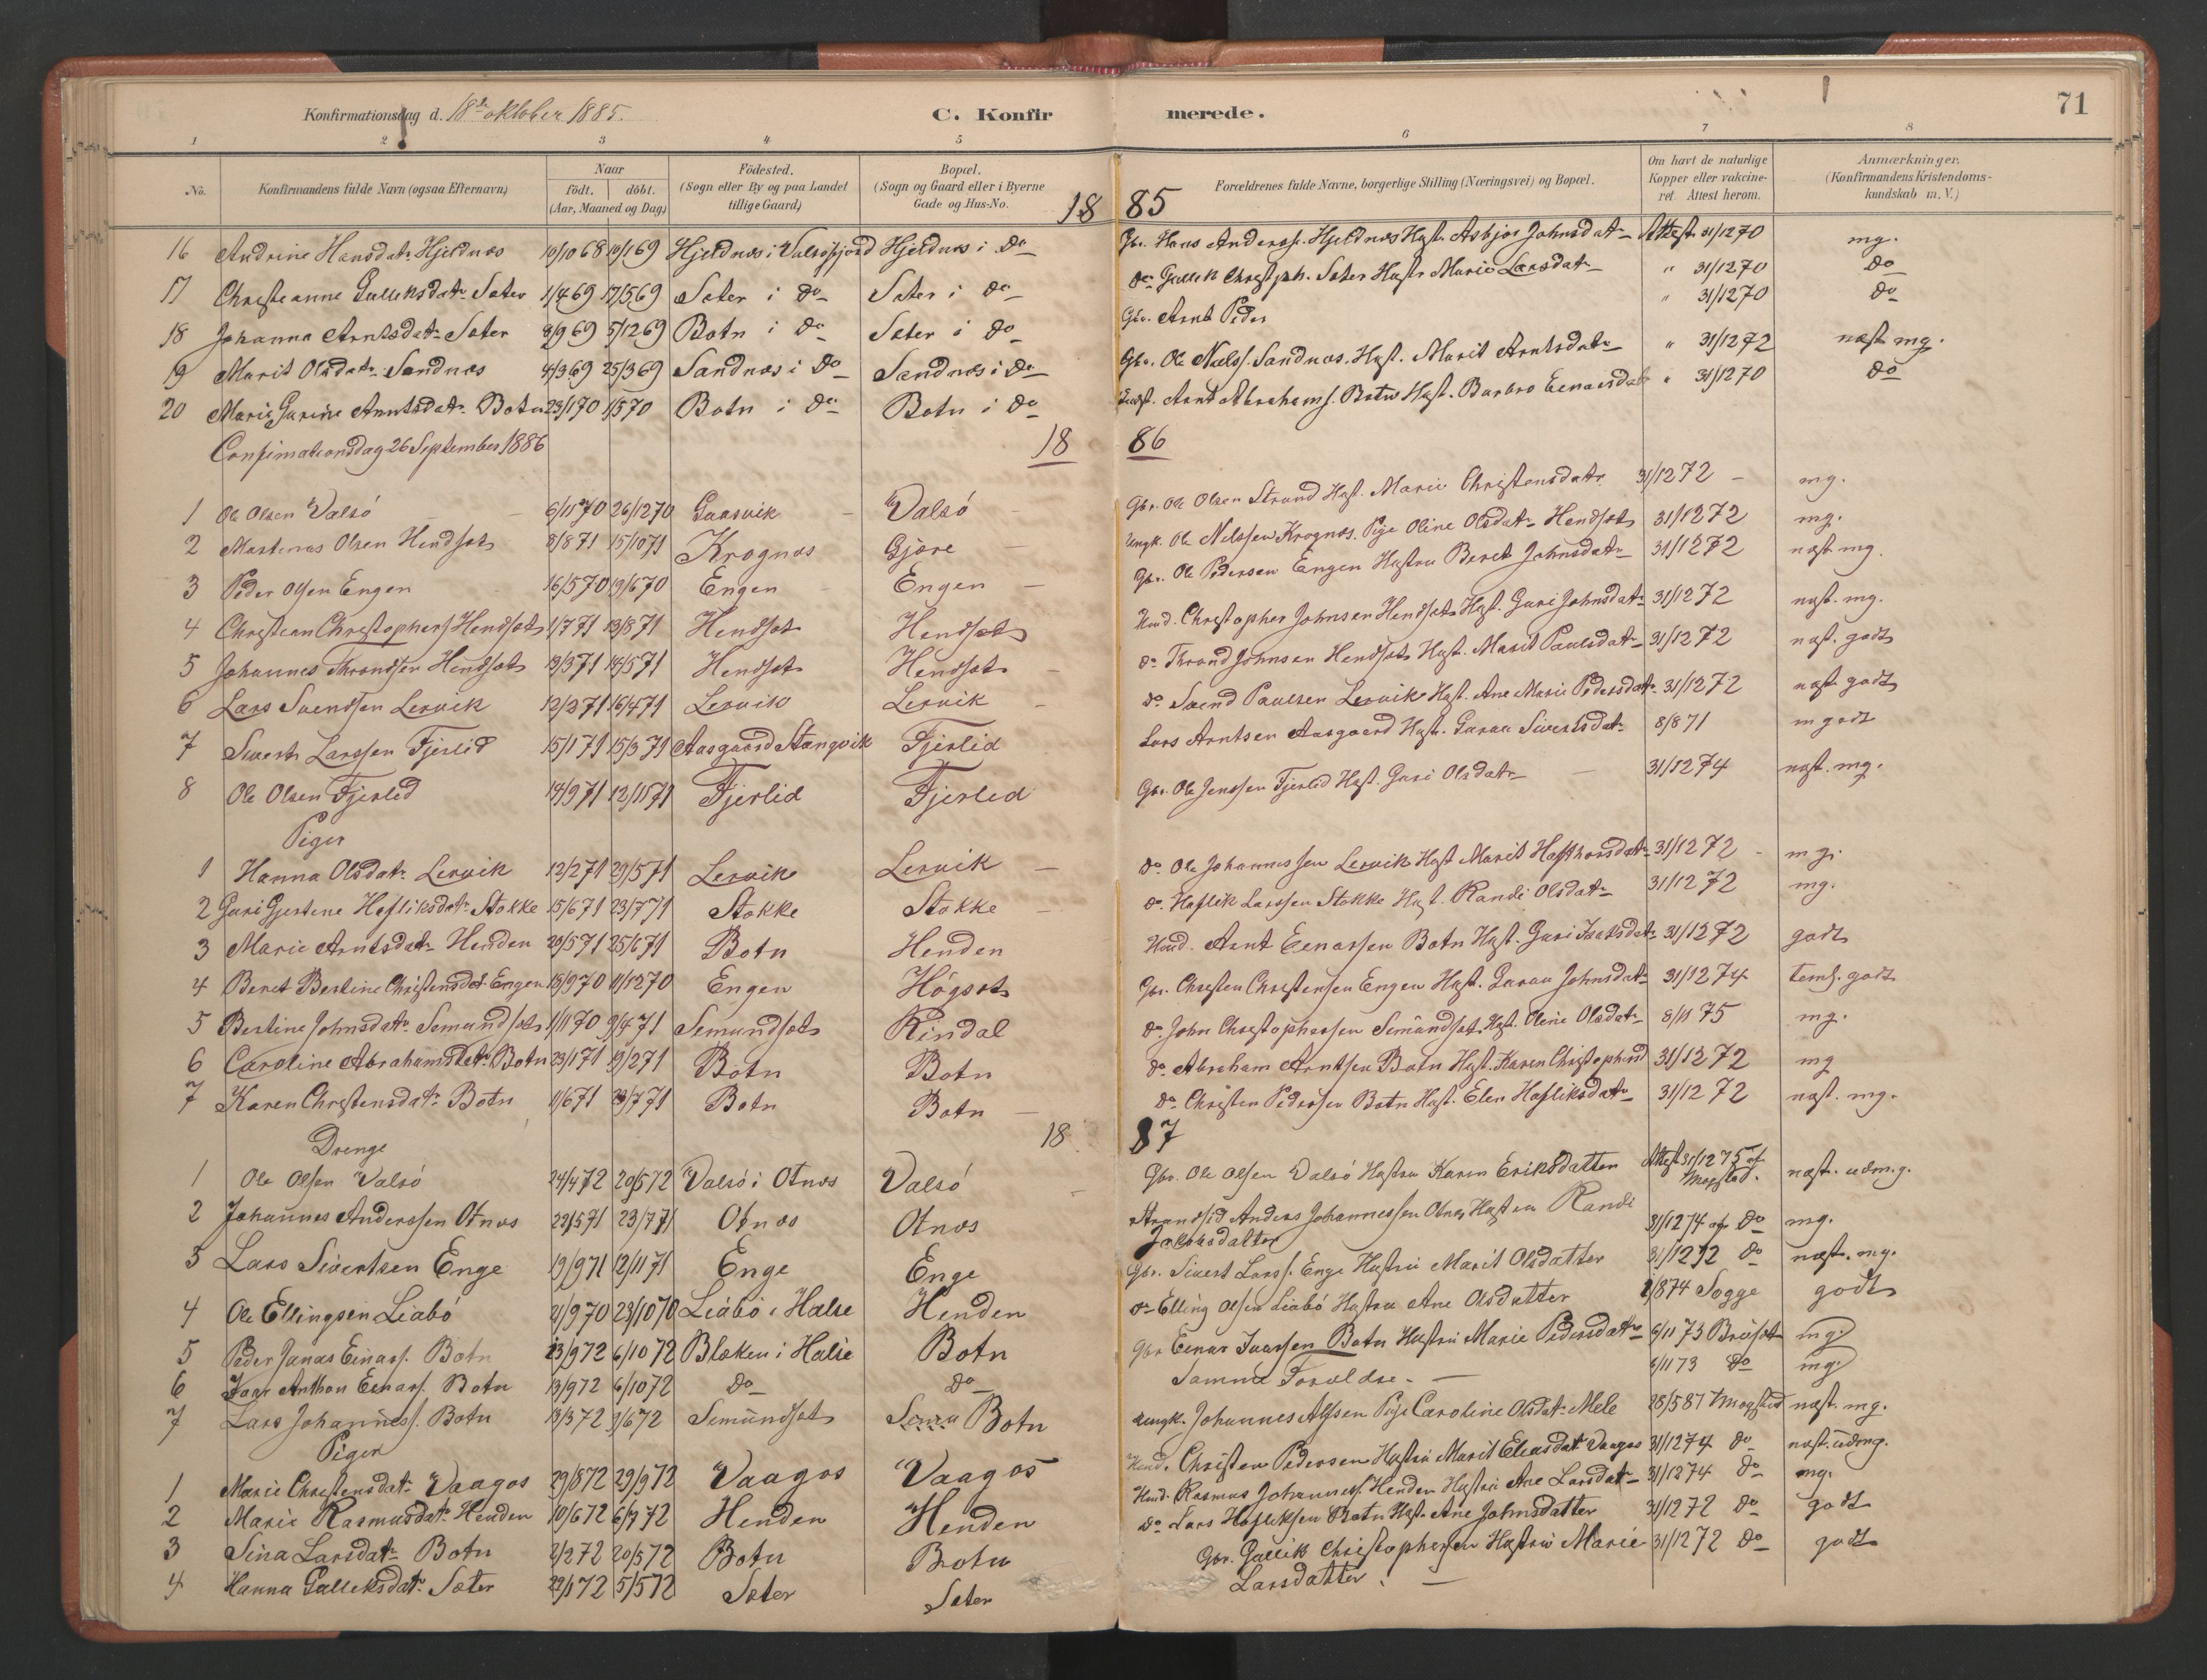 Konfirmationsdag d. 18de oktober 1885.
C. Konfirmerede.
71
1 2 3 4 5 6 7 8
No. Konfirmandens fulde Navn (ogsaa Efternavn) Naar födt. döbt. (Aar, Maaned og Dag) Födested. (Sogn eller By og paa Landet tillige Gaard) Bopæl. (Sogn og Gaard eller i Byerne Gade og Hus-No. Forældrenes fulde Navne, borgerlige Stilling (Næringsvei) og Bopæl. Om havt de naturlige Kopper eller vakcineret. Attest herom. Anmærkninger. (Konfirmandens Kristendomskundskab m. V.)
1885
16 Andrine Hansdatr Hjeldnæs 10/10 68 10/1 69 Hjeldnæs i Valsöfjord Hjeldnæs i do Gbr. Hans Anderss. Hjeldnæs Hust. Asbjør Johnsdatr Attest 31/12 70 mg.
17 Christianne Gulleksdatr Sæter 1/4 69 17/5 69 Sæter i do Sæter i do do Gullek Christoph. Sæter Hustr Marie Larsdatr " 31/12 70 do
18 Johanna Arntsdatr Sæter 8/9 69 5/12 69 Botn i do Sæter i do Gbr. Arnt Peder " 31/12 70 do
19 Marit Olsdatr Sandnæs 4/3 69 25/3 69 Sandnæs i do Sandnæs i do Gbr. Ole Nielss. Sandnæs. Hust. Marit Arntsdatr " 31/12 72 næst mg.
20 Marie Gurine Arntsdatr Botn 23/1 70 1/5 70 Botn i do Botn i do Arnt Abrahams. Botn Hust. Barbro Eenarsdatr " 31/12 70 do
Confirmationsdag 26 September 1886
1886
1 Ole Olsen Valsö 6/11 70 26/12 70 Gaasvik Valsö Gbr. Ole Olsen Strand Hust. Marie Christensdatr 31/12 72 mg.
2 Martinus Olsen Hendset 8/8 71 15/10 71 Krognæs Gjøre Ungk. Ole Nilssen Krognæs. Pige Oline Olsdatr Hendset 31/12 72 mg.
3 Peder Olsen Engen 16/5 70 19/6 70 Engen Engen Gbr. Ole Pedersen Engen Hustru Beret Johnsdatr 31/12 72 næst mg.
4 Christian Christophers. Hendset 1/7 71 13/8 71 Hendset Hendset Huusmd. Christopher Johnsen Hendset Hust. Guri Johnsdatr 31/12 72 næst. mg.
5 Johannes Throndsen Hendset 13/3 71 14/5 71 Hendset Hendset do Thrond Johnsen Hendset Hust. Marit Paulsdatr 31/12 72 næst. godt
6 Lars Svendsen Lervik 12/2 71 16/4 71 Lervik Lervik do Svend Paulsen Lervik Hust. Ane Marie Pedersdatr 31/12 72 næst godt
7 Sivert Larssen Fjerlid 15/1 71 15/3 71 Aasgaard Stangvik Fjerlid Lars Arntsen Aasgaard Hust. Guran Sivertsdatr 8/8 71 m godt
8 Ole Olsen Fjerlid 14/9 71 12/11 71 Fjerlid Fjerlid Gbr. Ole Jenssen Fjerlid Hust. Guri Olsdatr 31/12 74 næst. mg.
Piger
1 Hanna Olsdatr Lervik 12/2 71 29/5 71 Lervik Lervik do Ole Johannessen Lervik Hust Marit Hafthorsdatr 31/12 72 mg.
2 Guri Gjertine Hafliksdatr Stokke 15/6 71 23/7 71 Stokke Stokke do Haflik Larssen Stokke Hust. Randi Olsdatr 31/12 72 mg.
3 Marie Arntsdatr Henden 20/5 71 25/6 71 Botn Henden Huusmd. Arnt Eenarssen Botn Hust. Guri Isaksdatr 31/12 72 godt
4 Beret Bertine Christensdat Engen 18/9 70 11/12 70 Engen Högset Gbr. Christen Christensen Engen Hust. Guran Johnsdatr 31/12 74 teml. godt
5 Bertine Johnsdatr Semundset 1/11 70 9/4 71 Semundset Rindal do John Christophersen Semundset Hust. Oline Olsdatr 8/11 75 mg.
6 Caroline Abrahamsdatr Botn 23/1 71 19/2 71 Botn Botn do Abraham Arntsen Botn Hust. Karen Christophersd 31/12 72 mg
7 Karen Christensdatr Botn 11/6 71 23/7 71 Botn Botn do Christen Pedersen Botn Hust. Elen Hafliksdatr 31/12 72 næst. mg.
1887
Drenge
1 Ole Olsen Valsö 24/4 72 20/5 72 Valsö i Otnæs Valsö Gbr. Ole Olsen Valsö Hustru Karen Eriksdatter Attest 31/12 75 af Mogstad. næst. udm.g.
2 Johannes Anderssen Otnæs 22/5 71 23/7 71 Otnæs Otnæs Strandsid Anders Johannessen Otnes Hustru Randi Jakobsdatter 31/12 74 af do mg.
3 Lars Sivertsen Enge 19/9 71 12/11 71 Enge Enge Gbr. Sivert Larss. Enge Hustru Marit Olsdatter 31/12 72 do næst. mg.
4 Ole Ellingsen Liabö 21/9 70 23/10 70 Liabö i Halse Henden do Elling Olsen Liabö Hustru Ane Olsdatter 1/8 74 Sogge godt
5 Peder Janas Einarss. Botn 13/9 72 6/10 72 Blæken i Halse Botn Gbr Eenar Ivarssen Botn Hustru Marie Pedersdatr 6/11 73 Brøset mg.
6 Ivar Anthon Eenarss. Botn 13/9 72 6/10 72 do do Samme Forældre. 6/11 73 do mg.
7 Lars Johanness. Botn 13/3 72 9/6 72 Semundset Botn Ungk. Johannes Alfsen Pige Caroline Olsdatr Mele 28/5 87 Mogstad næst. mg.
Piger
1 Marie Christensdatr Vaagos 29/8 72 29/9 72 Vaagos Vaagos Huusmd. Christen Pedersen Hustru Marit Eliasdatr Vaagos 31/12 74 do næst. udmg.
2 Marie Rasmusdatr Henden 10/6 72 6/7 72 Henden Henden Huusmd. Rasmus Johanness. Henden Hustru Ane Larsdatr 31/12 74 do mg.
3 Sina Larsdatr Botn 2/2 72 20/5 72 Botn Botn do Lars Hafliksen Botn Hust. Ane Johnsdatter 31/12 72 do godt
4 Hanna Gulleksdatr Sæter 22/1 72 5/5 72 Sæter Sæter Gbr. Gullik Christophersen Hustru Marie Larsdatter. 31/12 72 do godt